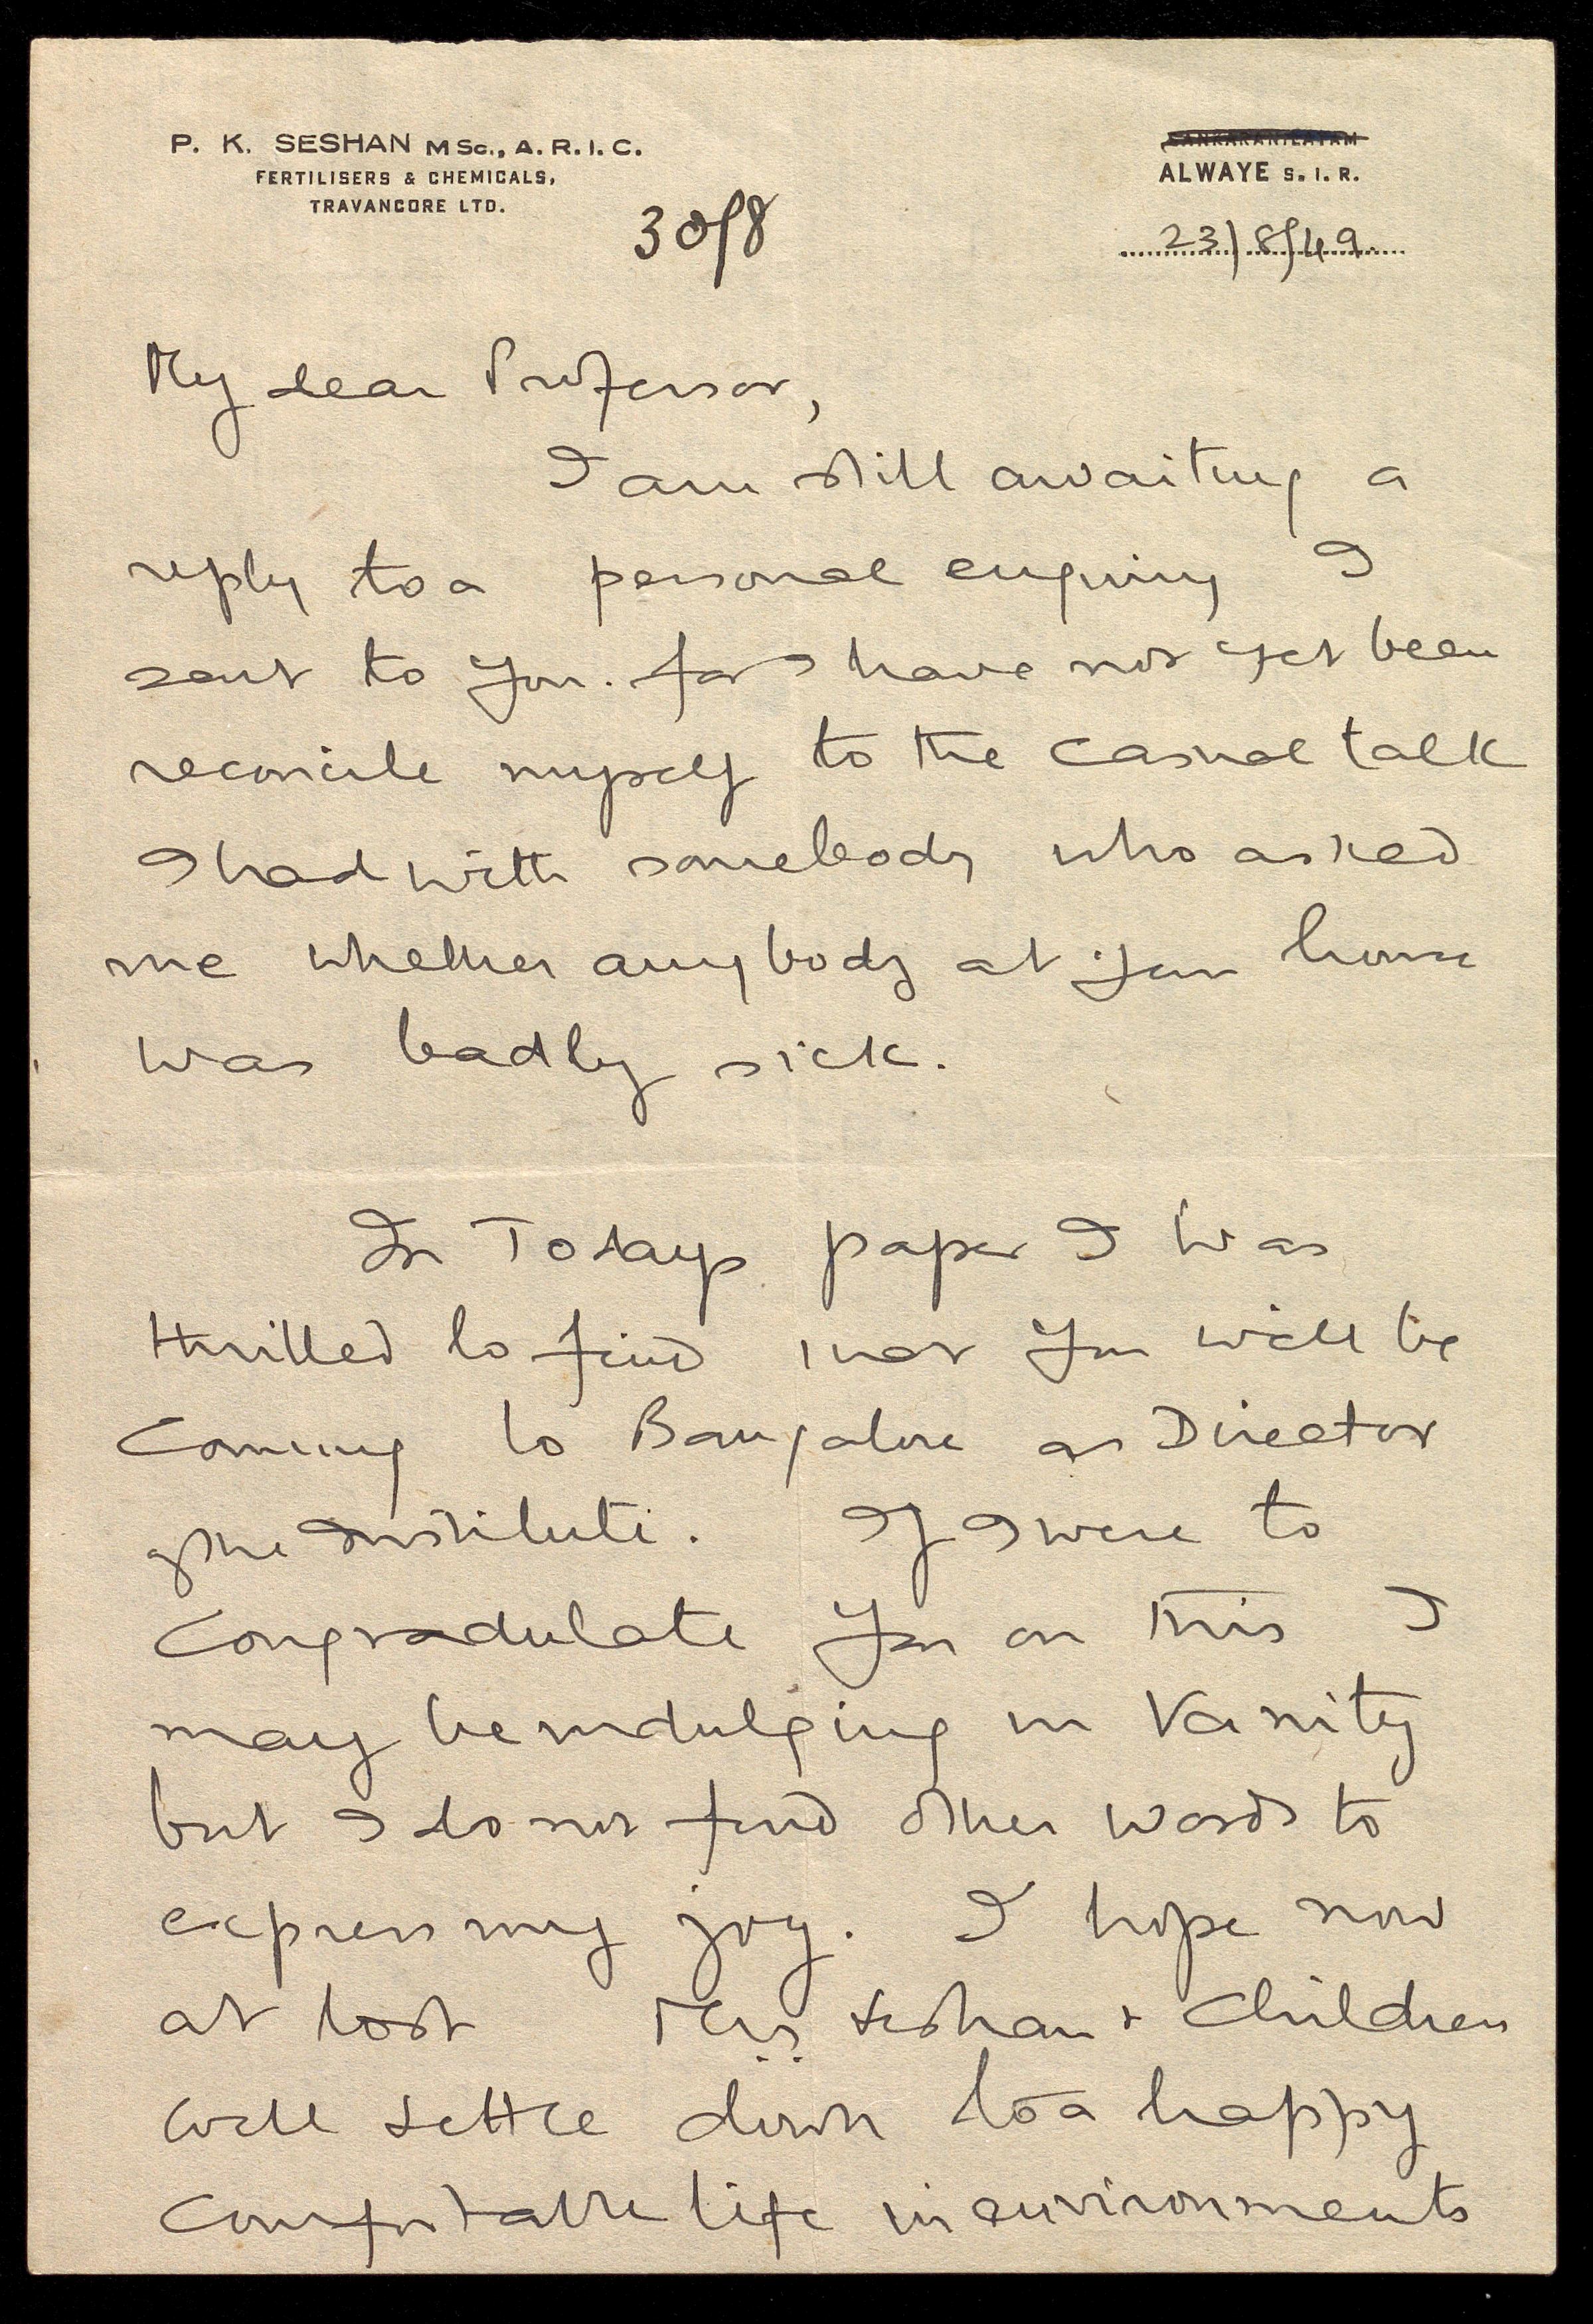 P. K. SESHAN MSc., A.R.I.C.
FERTILISERS & CHEMICALS,
TRAVANCORE LTD.
SANKARANILAYAM
ALWAYE S.I.R.
30/8
23/8/49
My dear Professor,
I am still awaiting a
reply to a personal enquiry I
sent to you. for I have not yet been
reconcile myself to the casual talk
I had with somebody who asked
me whether anybody at your home
was badly sick.
In Todays paper I was
thrilled to find that you will be
Coming to Bangalore as Director
of the Institute. If I were to
Congradulate you on this I
may be indulging in Vanity
but I do not find other words to
express my joy. I hope now
at last Mrs. Seshan & Children
will settle down to a happy
Comfortable life in environments